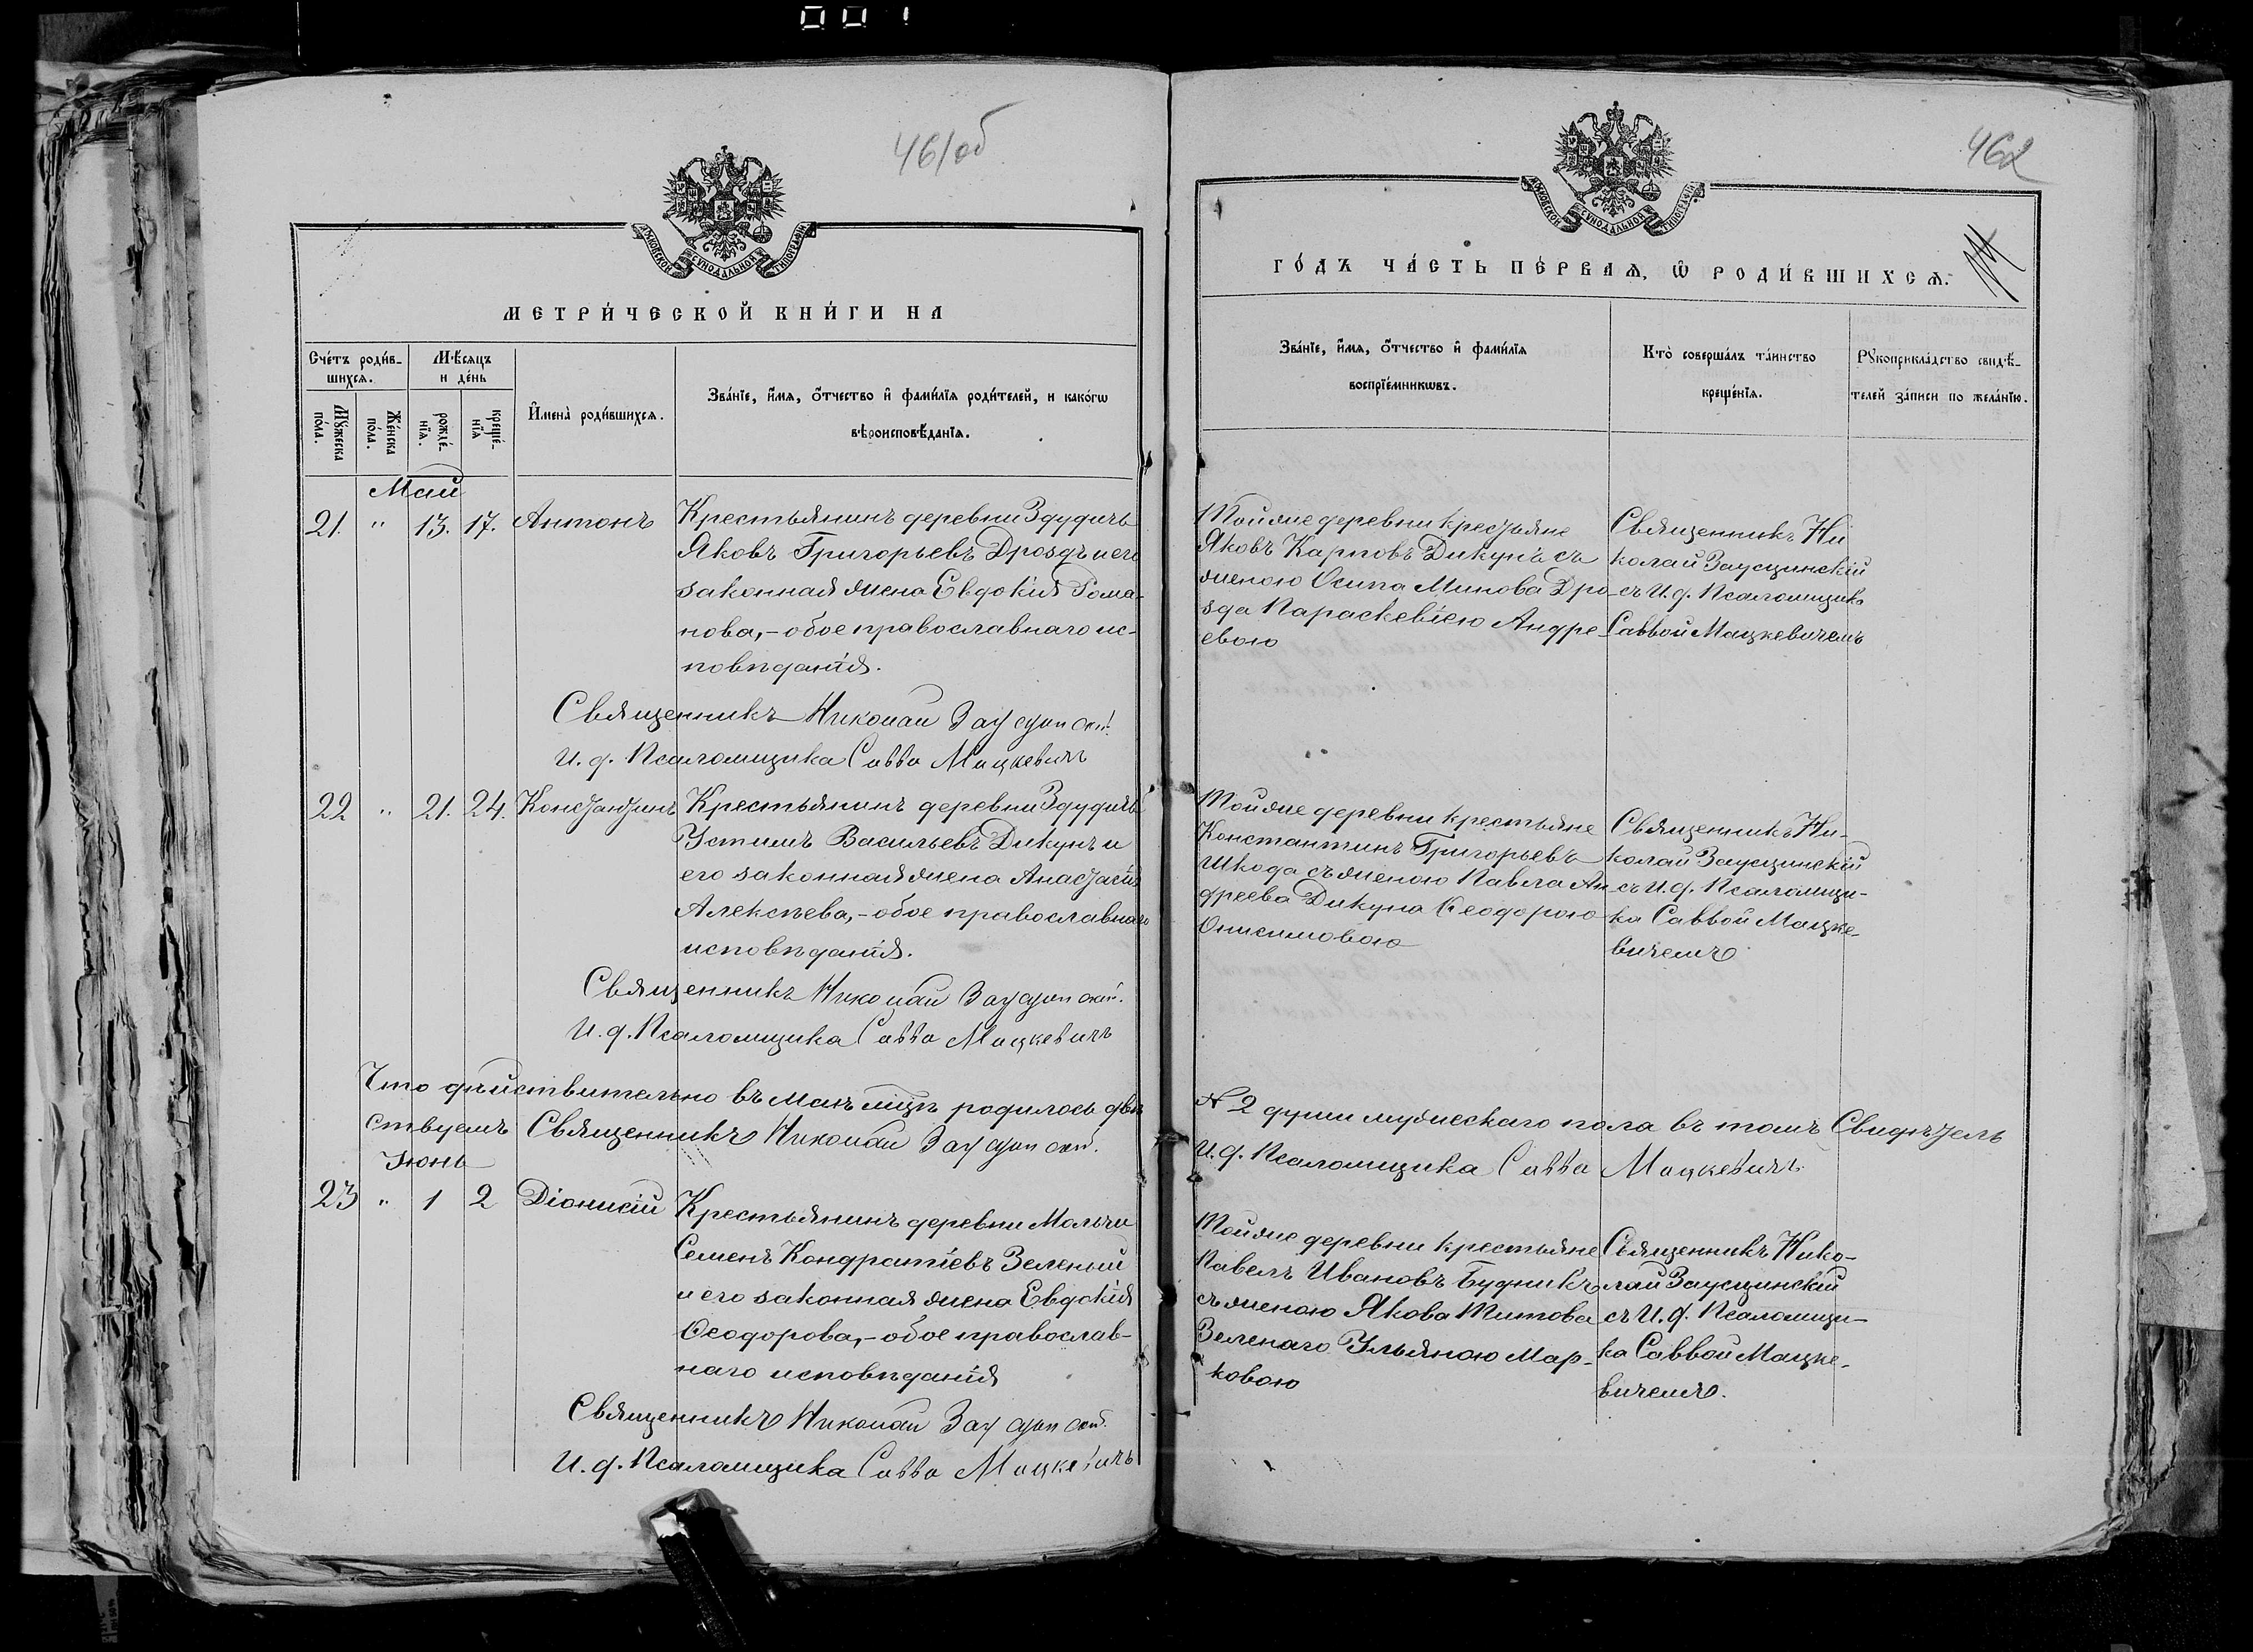 001
461об
МОСКОВСКОЙ СѴНОДАЛЬНОЙ ТИПОГРАФІИ
МЕТРИ́ЧЕСКОЙ КНИ́ГИ НА
Сче́тъ роди́в-
шихсѧ.
Мѣ́сяцъ
и де́нь
Мꙋ́жеска
по́ла.
Же́нска
по́ла.
рожде́-
нїѧ.
креще́-
нїѧ
И҆мена̀ роди́вшихсѧ.
Зва́нїе, и҆́мѧ, ѻ҆́тчество и҆ фами́лїѧ роди́телей, и како́гѡ
вѣроисповѣ́данїѧ.
Май
21. " 13. 17. Антонъ
Крестьянинъ деревни Здудичъ
Яковъ Григорьевъ Дроздъ и его
законная жена Евдокія Рома-
нова,- обое православнаго ис-
повѣданія.
Священникъ Николай Заусцинскій.
И. д. Псаломщика Савва Мацкевичъ
22 " 21. 24. Константинъ
Крестьянинъ деревни Здудичъ
Устимъ Васильевъ Дикунъ и
его законная жена Анастасія
Алексѣева,- обое православнаго
исповѣданія.
Священникъ Николай Заусцинскій.
И. д. Псаломщика Савва Мацкевичъ
Что дѣйствительно въ Маѣ мцѣ родилось двѣ
ствуемъ Священникъ Николай Заусцинскій.
Іюнь
23 " 1 2 Діонисій
Крестьянинъ деревни Мольчи
Семенъ Кондратіевъ Зеленый
и его законная жена Евдокія
Ѳеодорова,- обое православ-
наго исповѣданія
Священникъ Николай Заусцинскій.
И. д. Псаломщика Савва Мацкевичъ
462
МОСКОВСКОЙ СѴНОДАЛЬНОЙ ТИПОГРАФІИ
ГО́ДЪ ЧА́СТЬ ПЕ́РВАѦ, Ѡ҆ РОДИ́ВШИХСѦ.
Зва́нїе, и҆́мѧ, ѻ҆́тчество и҆ фами́лїѧ
воспрїе́мникѡвъ.
Кто̀ соверша́лъ та́инство
креще́нїѧ.
Рꙋкоприкла́дство свидѣ́-
телей за́писи по жела́нїю.
Той же деревни крестьяне
Яковъ Карповъ Дикунъ съ
женою Осипа Минова Дро-
зда Параскевіею Андре-
евою
Священникъ Ни
колай Заусцинскій
съ И. д. Псаломщика
Саввой Мацкевичемъ
Той же деревни крестьяне
Константинъ Григорьевъ
Шкода съ женою Павла Ан-
дреева Дикуна Ѳеодорою
Онисимовою
Священникъ Ни-
колай Заусцинскій
съ И. д. Псаломщи-
ка Саввой Мацке-
вичемъ
2 души мужескаго пола въ томъ Свидѣтель
И. д. Псаломщика Савва Мацкевичъ
Той же деревни крестьяне
Павелъ Ивановъ Будникъ
съ женою Якова Титова
Зеленаго Ульяною Мар-
ковою
Священникъ Нико-
лай Заусцинскій
съ И. д. Псаломщи-
ка Саввой Мацке-
вичемъ.